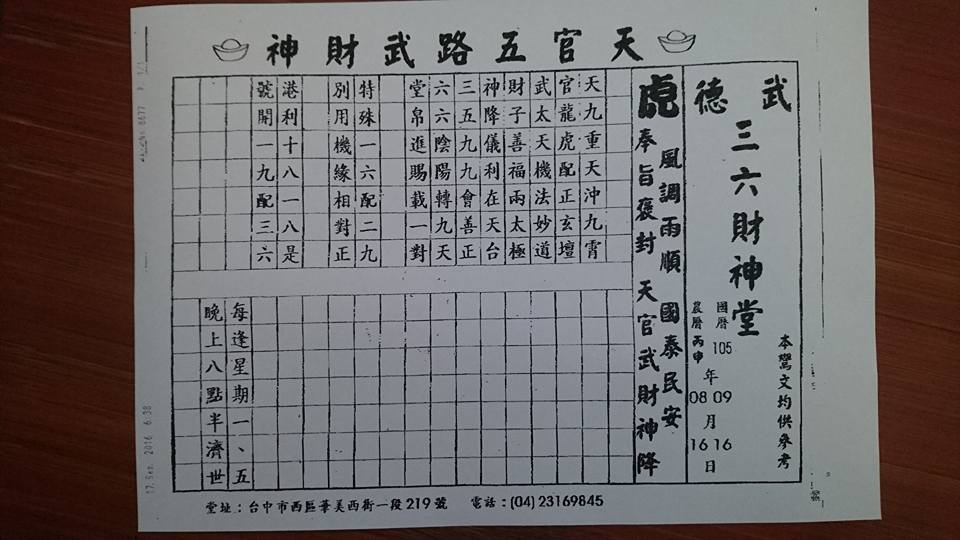 天官五路武財神
武德
三六財神堂
本鸞文均供參考
國曆 105 年 09 月 16 日
農曆 丙申 年 08 月 16 日
風調雨順 國泰民安
虎 奉旨褒封 天官武財神降
天九重天沖九霄
官龍虎配正玄壇
武太天機法妙道
財子善福兩太極
神降儀利在天台
三五九九會善正
六六陰陽轉九天
堂帛進賜載一對
特殊一六配二九
別用機緣相對正
港利十八一八是
號開一九配三六
每逢星期一、五
晚上八點半濟世
堂址：台中市西區華美西街一段219號 電話：(04) 23169845
17. Sep. 2016 6:38